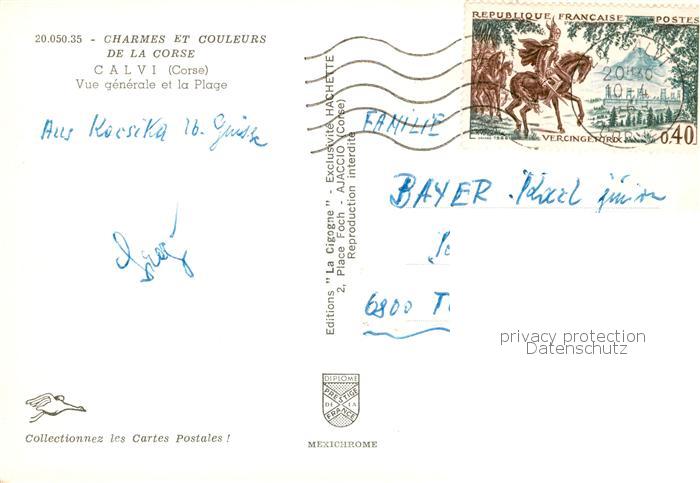 20.050.35 - CHARMES ET COULEURS
DE LA CORSE
CALVI (Corse)
Vue générale et la Plage
Aus Korsika lb. Grüsse
Editions "La Cigogne" - Exclusivité HACHETTE
2, Place Foch - AJACCIO (Corse)
Reproduction interdite
REPUBLIQUE FRANÇAISE POSTES
20H30
10
VERCINGETORIX
0,40
FAMILIE
BAYER Karl junior
6800 T
privacy protection
Datenschutz
DIPLOME
PRESTIGE
DE LA
FRANCE
MEXICHROME
Collectionnez les Cartes Postales !